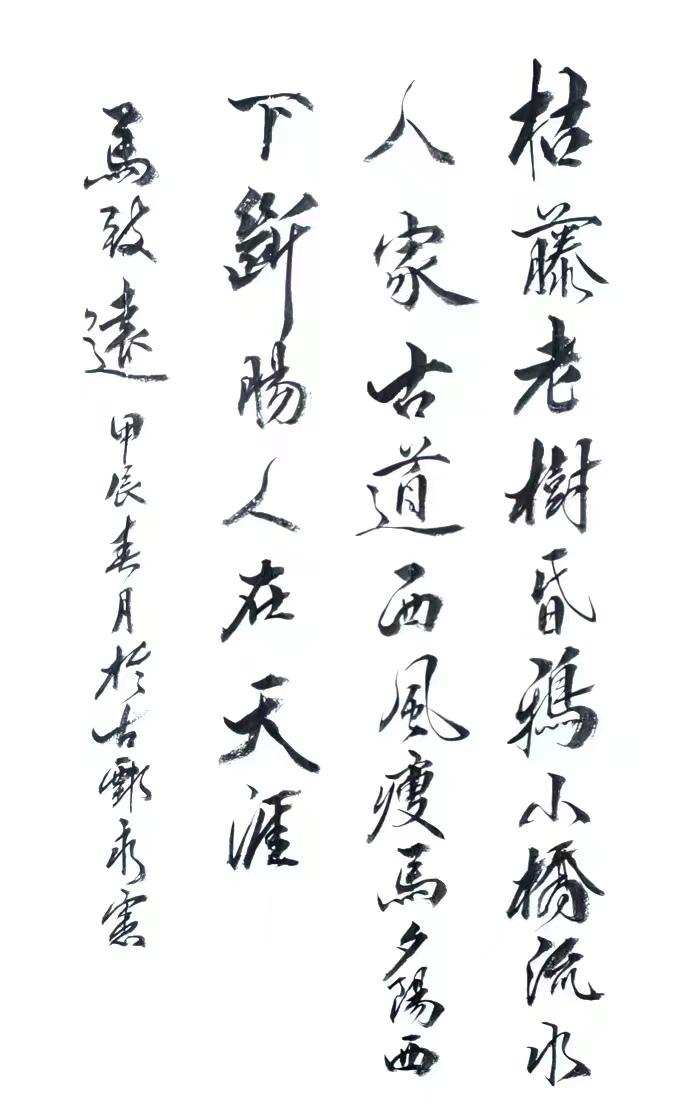 枯藤老樹昏鴉小橋流水
人家古道西風瘦馬夕陽西
下斷腸人在天涯
馬致遠 甲辰春月於古鄴永憲